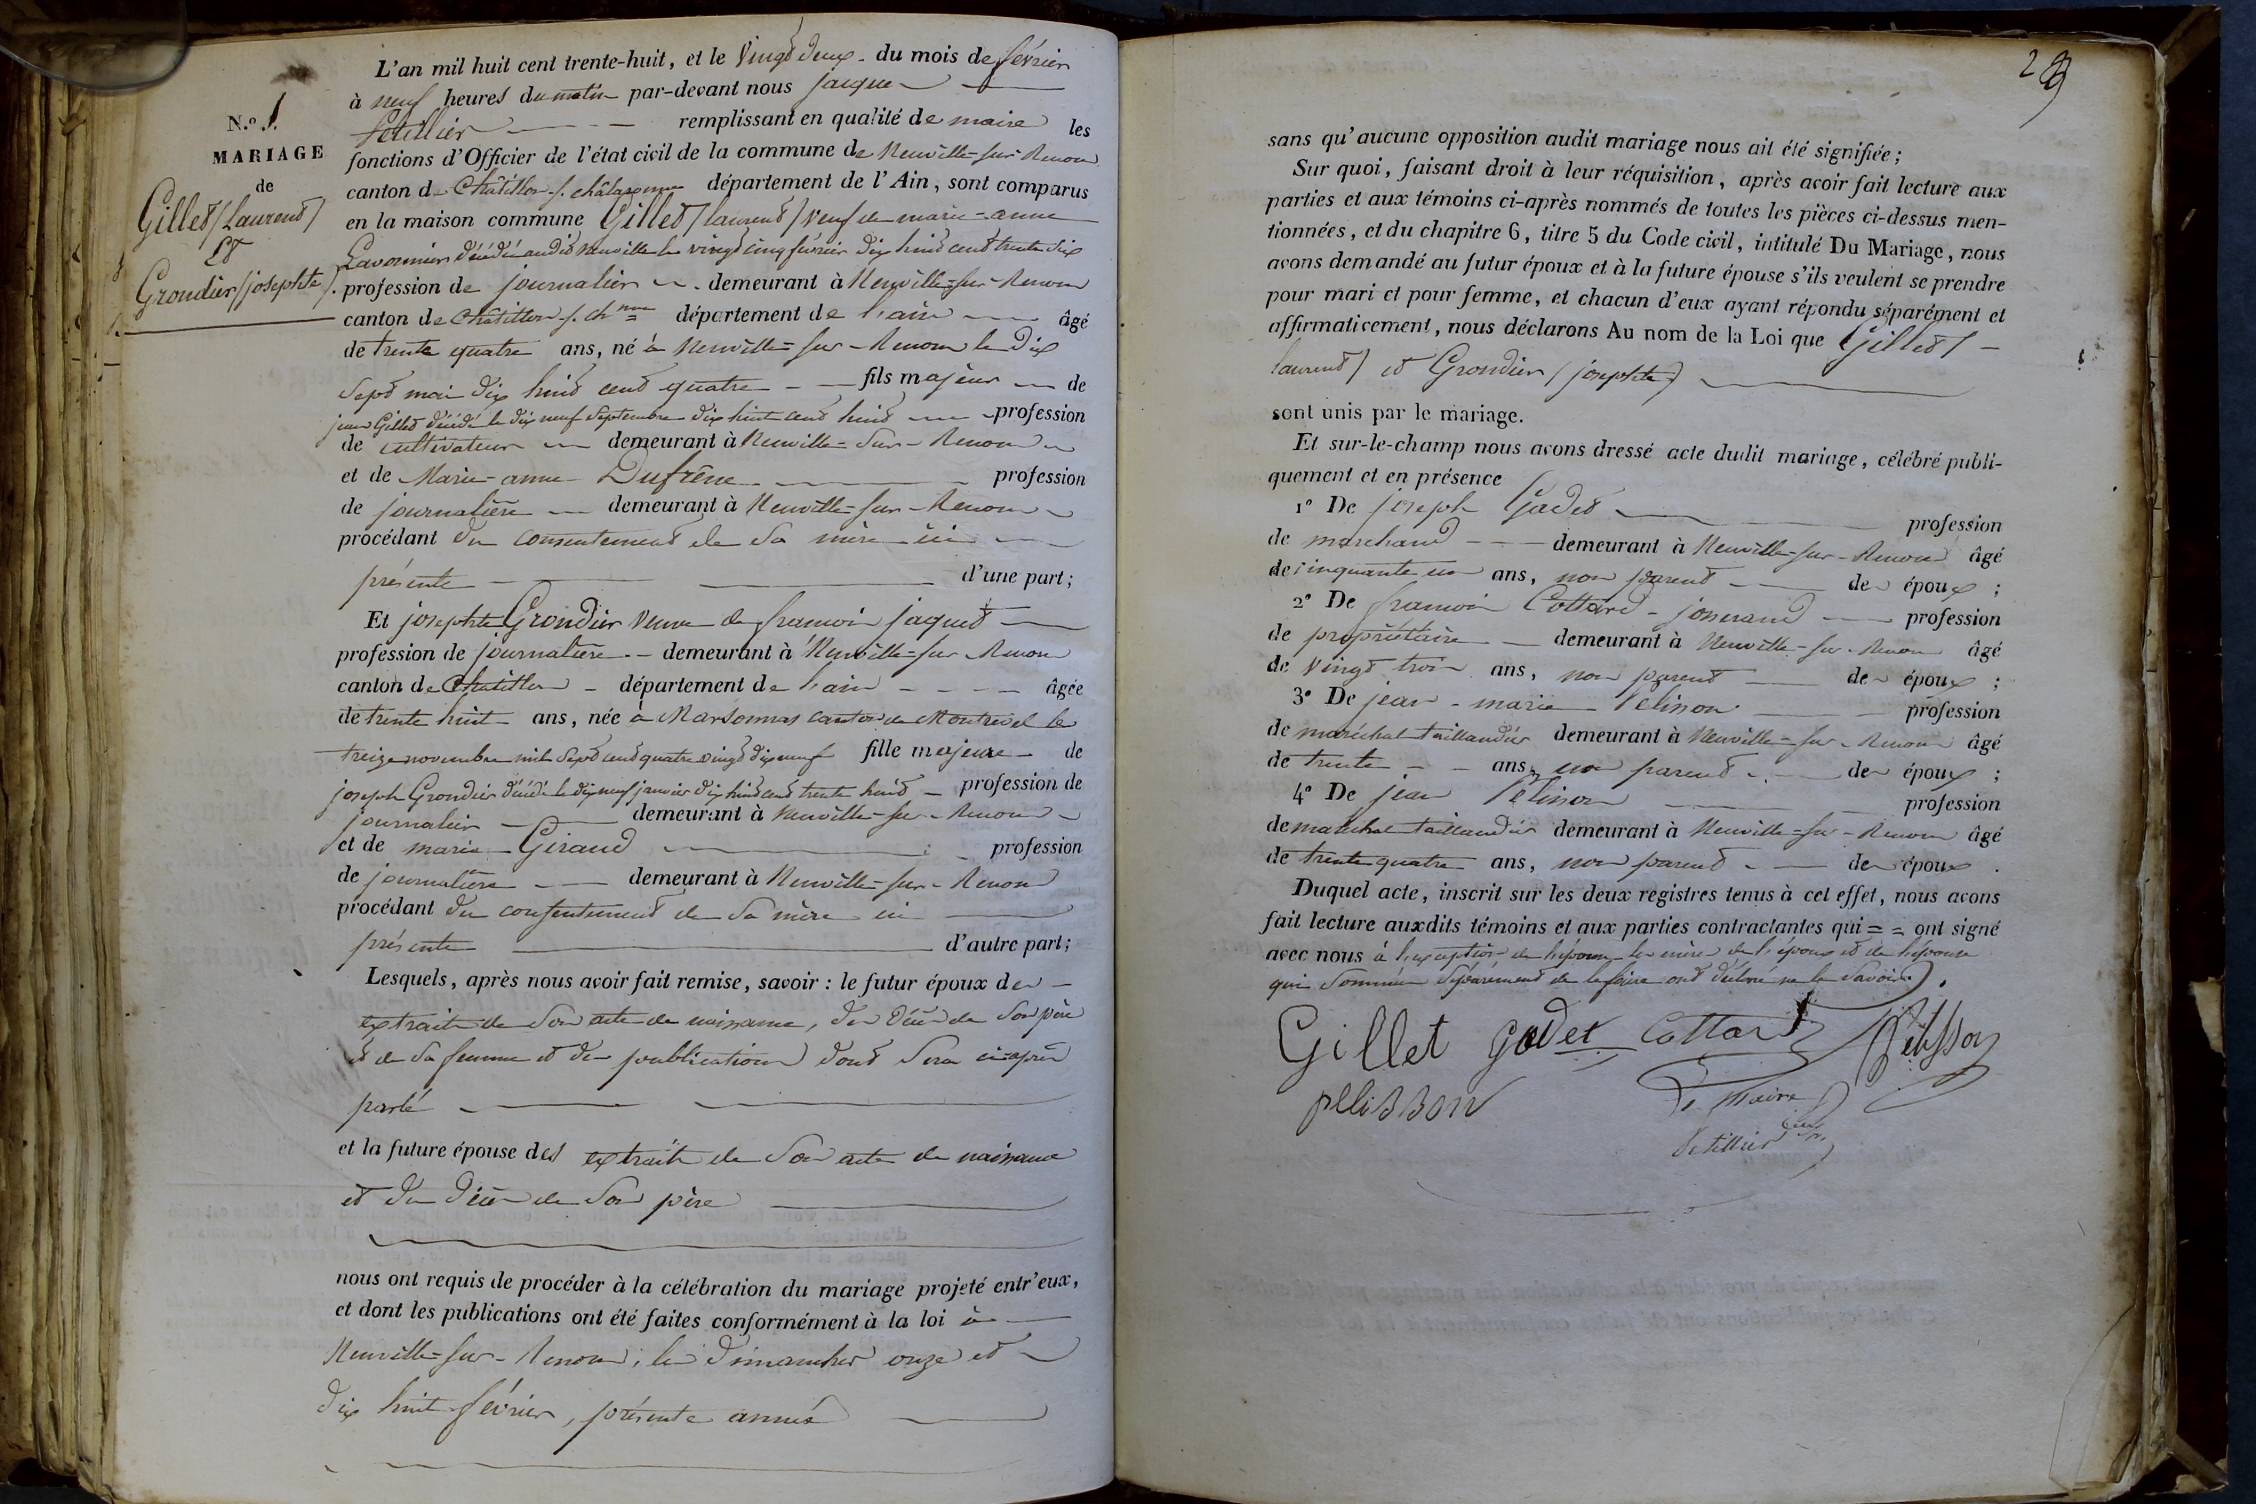 L'an mil huit cent trente-huit, et le vingt deux du mois de février
à neuf heures du matin par-devant nous jacques
remplissant en qualité de maire les
fonctions d'Officier de l'état civil de la commune de Neuville-sur-Renom
canton de Châtillon s. châlaronne département de l'Ain, sont comparus
en la maison commune Gillet (laurent) veuf de marie-anne
décédé audit neuville le vingt cinq février dix huit cent trente six
profession de journalier demeurant à Neuville-sur-Renom
canton de Châtillon s. Chnne département de l'ain âgé
de trente quatre ans, né à Neuville-sur-Renom le dix
sept mai dix huit cent quatre fils majeur de
jean Gillet décédé le dix neuf septembre dix huit cent huit profession
de cultivateur demeurant à Neuville-Sur-Renom
et de Marie-anne Dufrêne profession
de journalière demeurant à Neuville-sur-Renom
procédant du consentement de Sa mère ici
présente d'une part;
Et josephte Grondier veuve de francois jaquet
profession de journalière demeurant à Neuville-sur-Renom
canton de Chatillon département de l'ain âgée
de trente huit ans, née à Marsonnas canton de Montrevel le
treize novembre mil sept cent quatre vingt dix neuf fille majeure de
joseph Grondier décédé le dix neuf janvier dix huit cent trente huit profession de
journalier demeurant à Neuville-sur-Renom
et de marie Giraud profession
de journalière demeurant à Neuville-sur-Renom
procédant du consentement de Sa mère ici
présente d'autre part;
Lesquels, après nous avoir fait remise, savoir: le futur époux des
extraits de Son acte de naissance, du décès de Son père
et de Sa femme et des publications dont Sera ci-après
parlé
et la future épouse des extraits de Son acte de naissance
et du décès de Son père
nous ont requis de procéder à la célébration du mariage projeté entr'eux,
et dont les publications ont été faites conformément à la loi à
Neuville-sur-Renom, les dimanches onze et
dix huit février, présente année
N.o 1.
MARIAGE
de
Gillet (Laurent)
Et
Grondier (josephte).
29
sans qu'aucune opposition audit mariage nous ait été signifiée;
Sur quoi, faisant droit à leur réquisition, après avoir fait lecture aux
parties et aux témoins ci-après nommés de toutes les pièces ci-dessus men-
tionnées, et du chapitre 6, titre 5 du Code civil, intitulé Du Mariage, nous
avons demandé au futur époux et à la future épouse s'ils veulent se prendre
pour mari et pour femme, et chacun d'eux ayant répondu séparément et
affirmativement, nous déclarons Au nom de la Loi que Gillet (
laurent) et Grondier (josephte)
sont unis par le mariage.
Et sur-le-champ nous avons dressé acte dudit mariage, célébré publi-
quement et en présence
1° De joseph Gadet profession
de marchand demeurant à Neuville-sur-Renom âgé
de cinquante un ans, non parent des époux;
2° De francois Cottard-josserand profession
de propriétaire demeurant à Neuville-sur-Renom âgé
de vingt trois ans, non parent des époux;
3° De jean-marie Pelisson profession
de maréchal taillandier demeurant à Neuville-sur-Renom âgé
de trente ans, non parent des époux;
4° De jean Pélisson profession
de maréchal taillandier demeurant à Neuville-sur-Renom âgé
de trente quatre ans, non parent des époux.
Duquel acte, inscrit sur les deux registres tenus à cet effet, nous avons
fait lecture auxdits témoins et aux parties contractantes qui = = ont signé
avec nous à l'exception de l'épouse les mères de l'époux et de l'épouse
qui Sommées Séparément de le faire ont déclaré ne le Savoir.
Gillet Gadet Cottard Pelisson
pelisson Le Maire